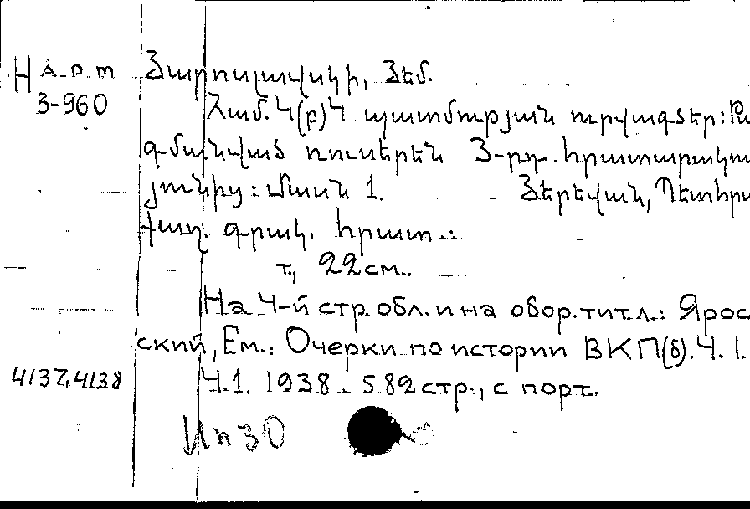 Н А.р.т Յարոսլավսկի, Յեմ.
3-960 Համ. Կ(բ)Կ պատմության ուրվագծեր: Թա
գմանված ռուսերեն 3-րդ. հրատարակու
յունից: Մասն 1. Յերեվան, Պետհրա
քաղ. գրակ. հրատ.:
т, 22см.
На 4-й стр. обл. и на обор. тит. л.: Ярос
ский, Ем.: Очерки по истории ВКП(б). Ч. 1.
4137,4138 Ч.1. 1938. 582 стр., с порт.
Ип 30